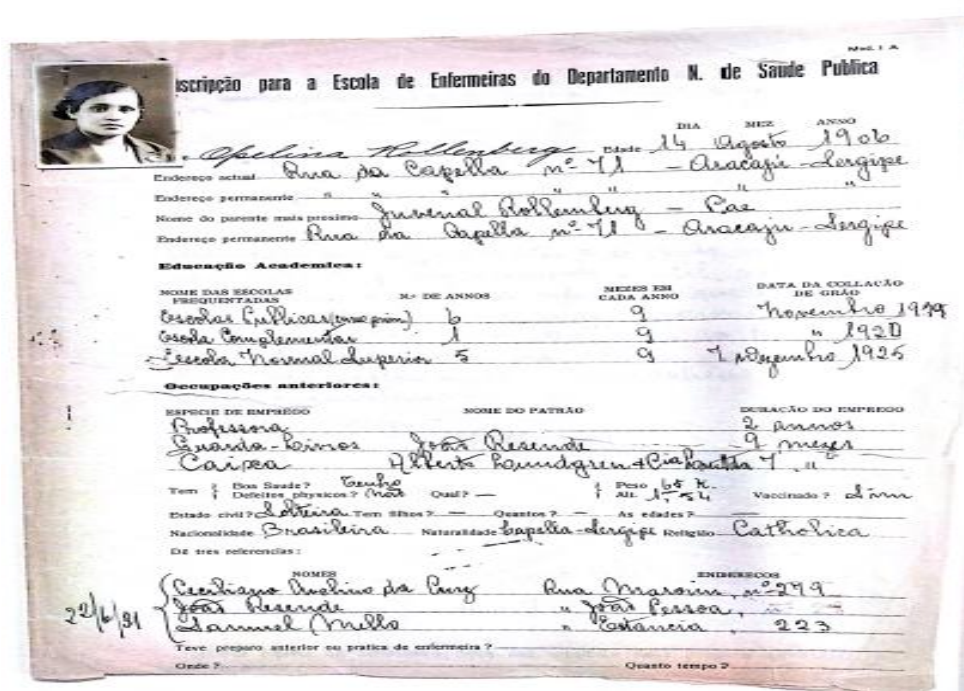 Mod. 1 A
nscripção para a Escola de Enfermeiras do Departamento N. de Saude Publica
DIA MEZ ANNO
Rollemberg Edade 14 Agosto 1906
Endereço actual Rua da Capella nº 71 - Aracajú - Sergipe
Endereço permanente " " " " " " "
Nome do parente mais proximo Juvenal Rollemberg - Pae
Endereço permanente Rua da Capella nº 71 - Aracajú - Sergipe
Educação Academica:
NOME DAS ESCOLAS FREQUENTADAS N.º DE ANNOS MEZES EM CADA ANNO DATA DA COLLAÇÃO DE GRÁO
Escolas Publicas (curso prim.) 6 9 Novembro
Escola Complementar 1 9 " 1920
Escola Normal Superior 5 9 Dezembro 1925
Occupações anteriores:
ESPECIE DE EMPREGO NOME DO PATRÃO DURAÇÃO DO EMPREGO
Professora 2 annos
Guarda-Livros João Resende 9 mezes
Caixa Alberto Lundgren & Cia 7 "
Tem { Boa Saude? Tenho Defeitos physicos? Não Qual? — { Peso 65 K. Alt. 1,54 Vaccinado? Sim
Estado civil? Solteira Tem filhos? — Quantos? — As edades? —
Nacionalidade Brasileira Naturalidade Capella-Sergipe Religião Catholica
Dê tres referencias:
NOMES ENDEREÇOS
Avelino da Cruz Rua Maroim, nº 299
João Resende " João Pessoa,
Samuel Mello " Estancia, 223
22/6/31
Teve preparo anterior ou pratica de enfermeira?
Onde? Quanto tempo?